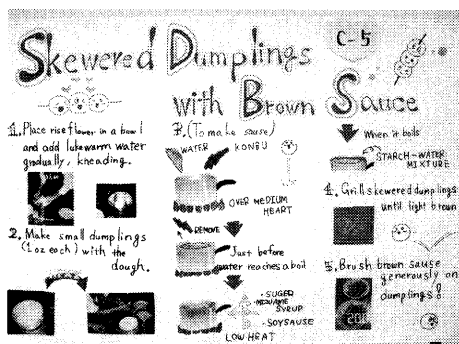 Skewered Dumplings
with Brown Sauce
C-5
1. Place rise flower in a bowl
and add lukewarm water
gradually, kneading.
2. Make small dumplings
(1 oz each) with the
dough.
3. (To make sause)
WATER
KONBU
OVER MEDIUM
HEART
REMOVE
Just before
water reaches a boil
・SUGER
SYRUP
・SOYSAUSE
LOW HEAT
When it boils
STARCH-WATER
MIXTURE
4. Grill skewered dumplings
until light brown
5. Brush brown sause
generously on
dumplings!